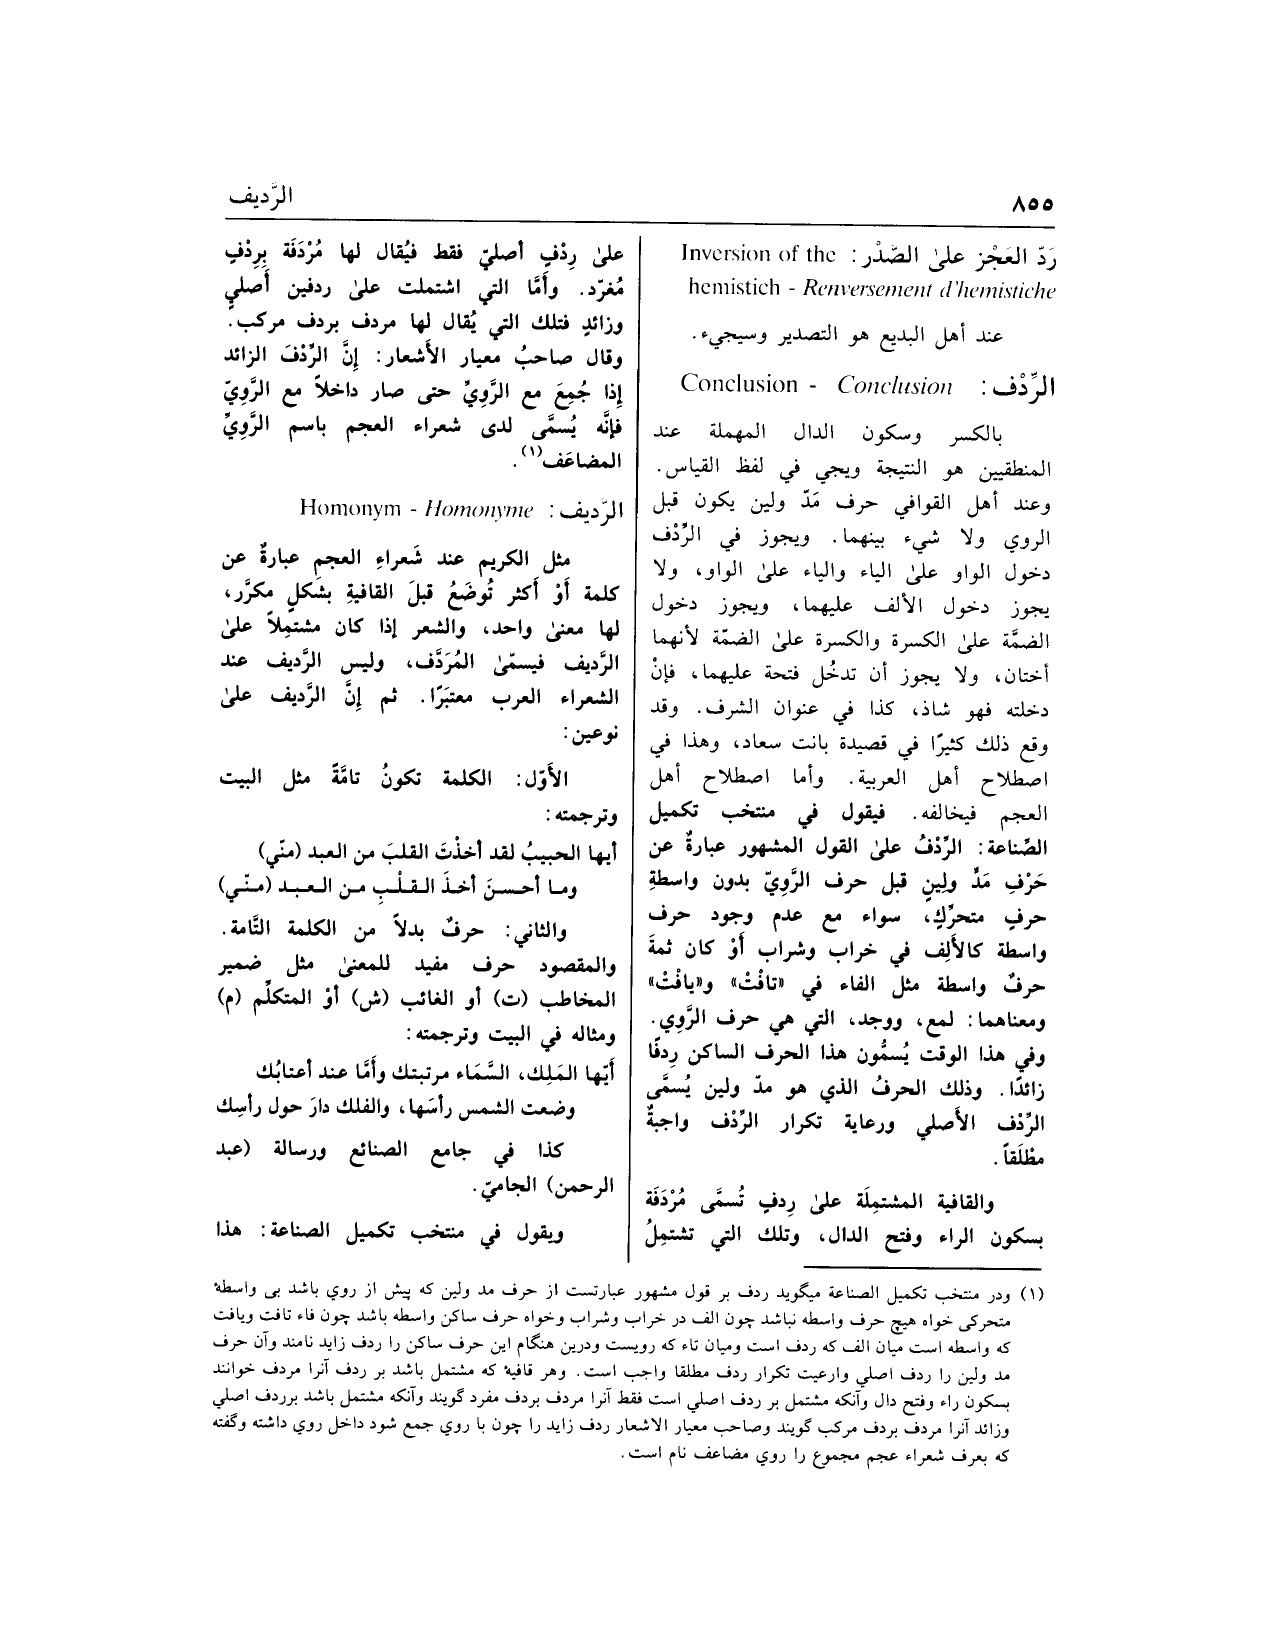 ٨٥٥
الرَّديف
رَدّ العَجْز علىٰ الصَّدْر: Inversion of the
hemistich - Renversement d'hemistiche
عند أهل البديع هو التصدير وسيجيء.
الرِّدْف: Conclusion - Conclusion
بالكسر وسكون الدال المهملة عند
المنطقيين هو النتيجة ويجي في لفظ القياس.
وعند أهل القوافي حرف مَدّ ولين يكون قبل
الروي ولا شيء بينهما. ويجوز في الرِّدْف
دخول الواو علىٰ الياء والياء علىٰ الواو، ولا
يجوز دخول الألف عليهما، ويجوز دخول
الضمَّة علىٰ الكسرة والكسرة علىٰ الضمّة لأنهما
أختان، ولا يجوز أن تدخُل فتحة عليهما، فإنْ
دخلته فهو شاذ، كذا في عنوان الشرف. وقد
وقع ذلك كثيرًا في قصيدة بانت سعاد، وهذا في
اصطلاح أهل العربية. وأما اصطلاح أهل
العجم فيخالفه. فيقول في منتخب تكميل
الصِّناعة: الرِّدْفُ علىٰ القول المشهور عبارةٌ عن
حَرْفِ مَدٍّ ولينٍ قبل حرف الرَّويّ بدون واسطةِ
حرفٍ متحرِّكٍ، سواء مع عدم وجود حرف
واسطة كالألِف في خراب وشراب أوْ كان ثمةَ
حرفٌ واسطة مثل الفاء في «تافْتْ» و«يافْتْ»
ومعناهما: لمع، ووجد، التي هي حرف الرَّوي.
وفي هذا الوقت يُسمُّون هذا الحرف الساكن رِدفًا
زائدًا. وذلك الحرفُ الذي هو مدّ ولين يُسمَّى
الرِّدْف الأصلي ورعاية تكرار الرِّدْف واجبةٌ
مطْلَقاً.
والقافية المشتمِلَة علىٰ رِدفٍ تُسمَّى مُرْدَفَة
بسكون الراء وفتح الدال، وتلك التي تشتمِلُ
علىٰ رِدْفٍ أصليّ فقط فيُقال لها مُرْدَفَة بِرِدْفٍ
مُفرَد. وأمَّا التي اشتملت علىٰ ردفين أصلي
وزائدٍ فتلك التي يُقال لها مردف بردف مركب.
وقال صاحبُ معيار الأشعار: إنَّ الرِّدْفَ الزائد
إذا جُمِعَ مع الرَّويِّ حتى صار داخلاً مع الرَّويّ
فإنَّه يُسمَّى لدى شعراء العجم باسم الرَّويِّ
المضاعَف(١).
الرَّديف: Homonym - Homonyme
مثل الكريم عند شَعراءِ العجم عبارةٌ عن
كلمة أوْ أكثر تُوضَعُ قبلَ القافيةِ بشكلٍ مكرَّر،
لها معنىٰ واحد، والشعر إذا كان مشتمِلاً علىٰ
الرَّديف فيسمّىٰ المُرَدَّف، وليس الرَّديف عند
الشعراء العرب معتبَرًا. ثم إنَّ الرَّديف علىٰ
نوعين:
الأوّل: الكلمة تكونُ تامَّةً مثل البيت
وترجمته:
أيها الحبيبُ لقد أخذْتَ القلبَ من العبد (منّي)
وما أحسنَ أخذَ القلْبِ من العبد (منّي)
والثاني: حرفٌ بدلاً من الكلمة التَّامة.
والمقصود حرف مفيد للمعنىٰ مثل ضمير
المخاطب (ت) أو الغائب (ش) أوْ المتكلِّم (م)
ومثاله في البيت وترجمته:
أيّها المَلِك، السَّمَاء مرتبتك وأمَّا عند أعتابُك
وضعت الشمس رأسَها، والفلك دارَ حول رأسِك
كذا في جامع الصنائع ورسالة (عبد
الرحمن) الجاميّ.
ويقول في منتخب تكميل الصناعة: هذا
(١) ودر منتخب تكميل الصناعة ميگويد ردف بر قول مشهور عبارتست از حرف مد ولين كه پيش از روي باشد بى واسطهٔ
متحركى خواه هيچ حرف واسطه نباشد چون الف در خراب وشراب وخواه حرف ساكن واسطه باشد چون فاء تافت ويافت
كه واسطه است ميان الف كه ردف است وميان تاء كه رويست ودرين هنگام اين حرف ساكن را ردف زايد نامند وآن حرف
مد ولين را ردف اصلي وارعيت تكرار ردف مطلقا واجب است. وهر قافيهٔ كه مشتمل باشد بر ردف آنرا مردف خوانند
بسكون راء وفتح دال وآنكه مشتمل بر ردف اصلي است فقط آنرا مردف بردف مفرد گويند وآنكه مشتمل باشد برردف اصلي
وزائد آنرا مردف بردف مركب گويند وصاحب معيار الاشعار ردف زايد را چون با روي جمع شود داخل روي داشته وگفته
كه بعرف شعراء عجم مجموع را روي مضاعف نام است.